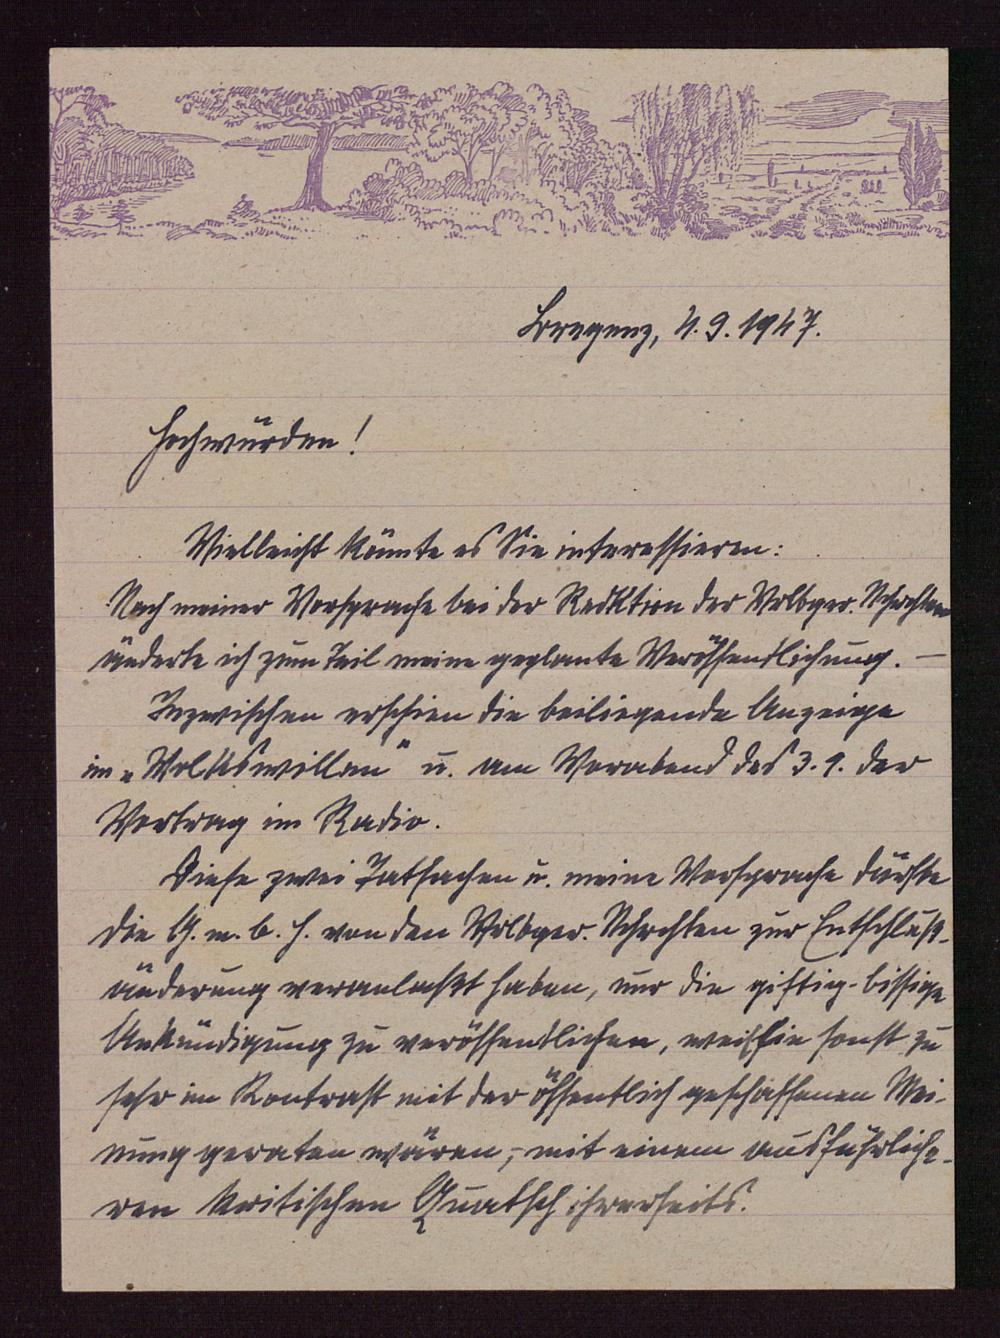 Bregenz, 4.9.1947.
Hochwürden!
Vielleicht könnte es Sie interessieren:
Nach meiner Vorsprache bei der Redktion der Vrlbger. Nchrchten
änderte ich zum Teil meine geplante Veröffentlichung. —
Inzwischen erschien die beiliegende Anzeige
im „Volkswillen" u. am Vorabend des 3.9. der
Vortrag im Radio.
Diese zwei Tatsachen u. meine Vorsprache dürfte
die G.m.b.H. von den Vrlbger. Nchrchten zur Entschluß-
änderung veranlaßt haben, nur die giftig-bissige
Ankündigung zu veröffentlichen, weil sie sonst zu
sehr im Kontrast mit der öffentlich geschaffenen Mei-
nung geraten wären, mit einem ausführliche-
ren kritischen Quatsch ihrerseits.